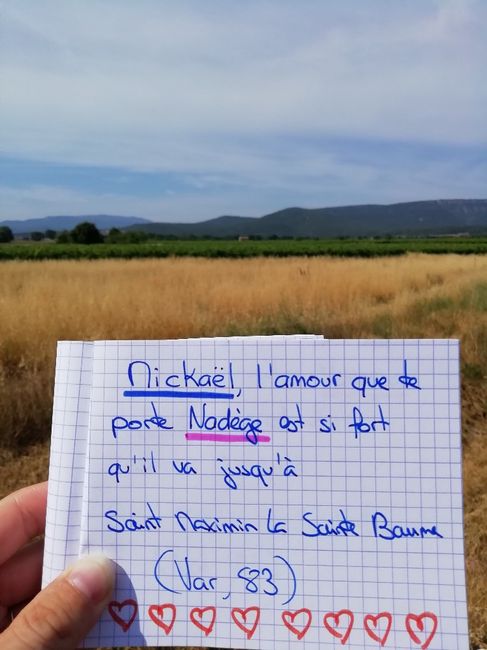 Nickaël, l'amour que te
porte Nadège est si fort
qu'il va jusqu'à
Saint Maximin La Sainte Baume
(Var, 83)